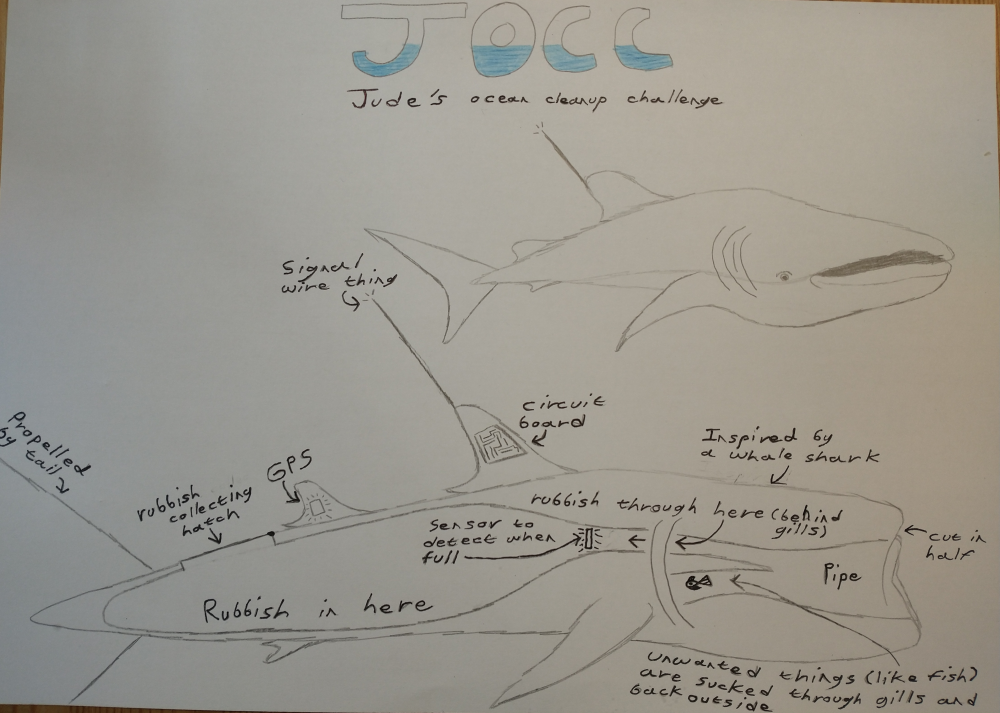 JOCC
Jude's ocean cleanup challenge
Signal
wire thing
circuit
board
Propelled
by tail
GPS
rubbish
collecting
hatch
Inspired by
a whale shark
rubbish through here (behind
gills)
Sensor to
detect when
full
cut in
half
Pipe
Rubbish in here
unwanted things (like fish)
are sucked through gills and
back outside